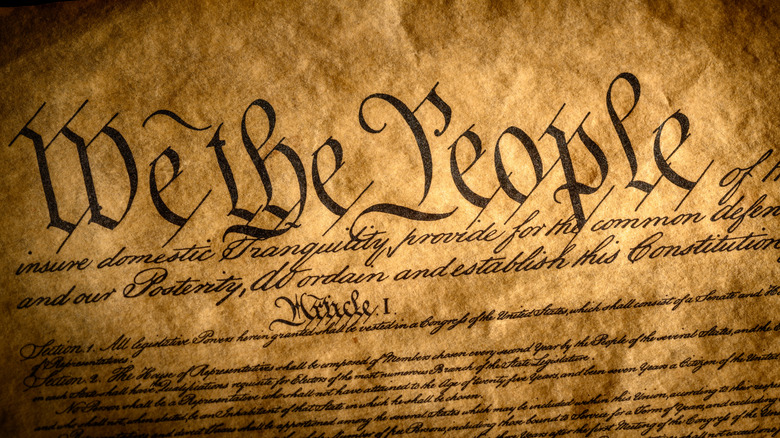 We the People of
insure domestic Tranquility, provide for the common defen
and our Posterity, do ordain and establish this Constitution
Article. I.
Section. 1. All legislative Powers herein granted shall be vested in a Congress of the United States, which shall consist of a Senate and
of Representatives.
Section. 2. The House of Representatives shall be composed of Members chosen every second Year by the People of the several States, and the
in each State shall have the Qualifications requisite for Electors of the most numerous Branch of the State Legislature.
No Person shall be a Representative who shall not have attained to the Age of twenty five Years, and been seven Years a Citizen of the United
and who shall not, when elected, be an Inhabitant of that State in which he shall be chosen.
and direct Taxes shall be apportioned among the several States which may be included within this Union, according to their
of free Persons, including those bound to Service for a Term of Years, and
Years after the first Meeting of the Congress of the